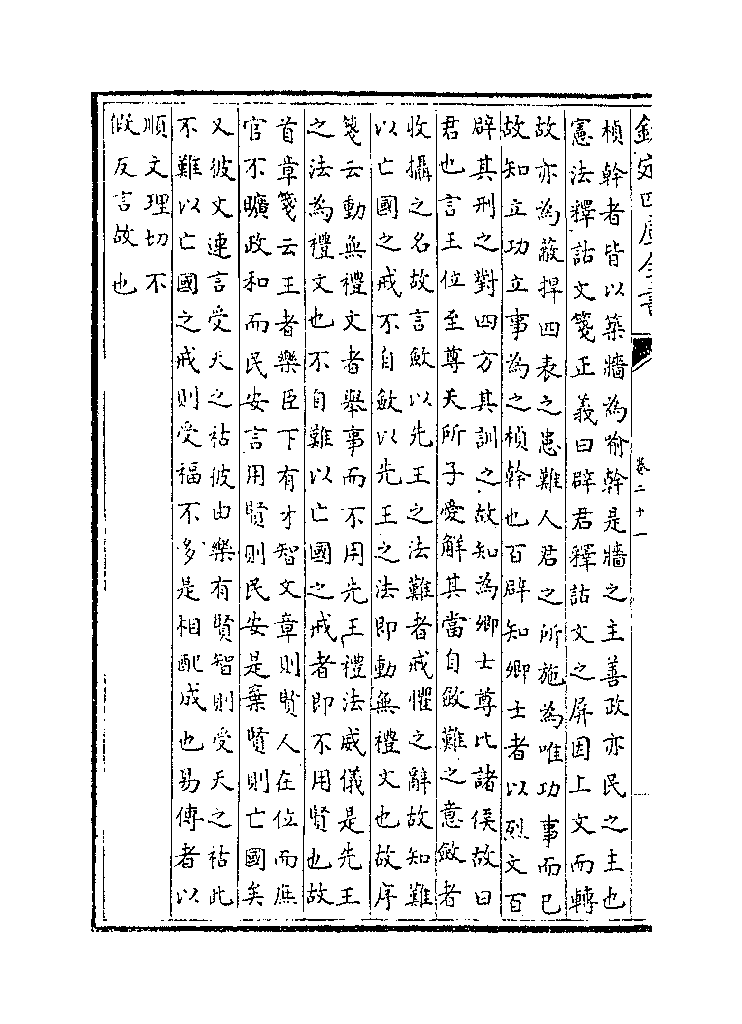 欽定四庫全書
卷二十一
楨幹者皆以築牆為喻幹是牆之主善政亦民之主也
憲法釋詁文箋正義曰辟君釋詁文之屏因上文而轉
故亦為蔽捍四表之患難人君之所施為唯功事而已
故知立功立事為之楨幹也百辟知卿士者以烈文百
辟其刑之對四方其訓之故知為卿士尊比諸侯故曰
君也言王位至尊天所子愛解其當自斂難之意斂者
收攝之名故言斂以先王之法難者戒懼之辭故知難
以亡國之戒不自斂以先王之法即動無禮文也故序
箋云動無禮文者舉事而不用先王禮法威儀是先王
之法為禮文也不自難以亡國之戒者即不用賢也故
首章箋云王者樂臣下有才智文章則賢人在位而庶
官不曠政和而民安言用賢則民安是棄賢則亡國矣
又彼文連言受天之祜彼由樂有賢智則受天之祜此
不難以亡國之戒則受福不多是相配成也易傳者以
順文理切不
假反言故也